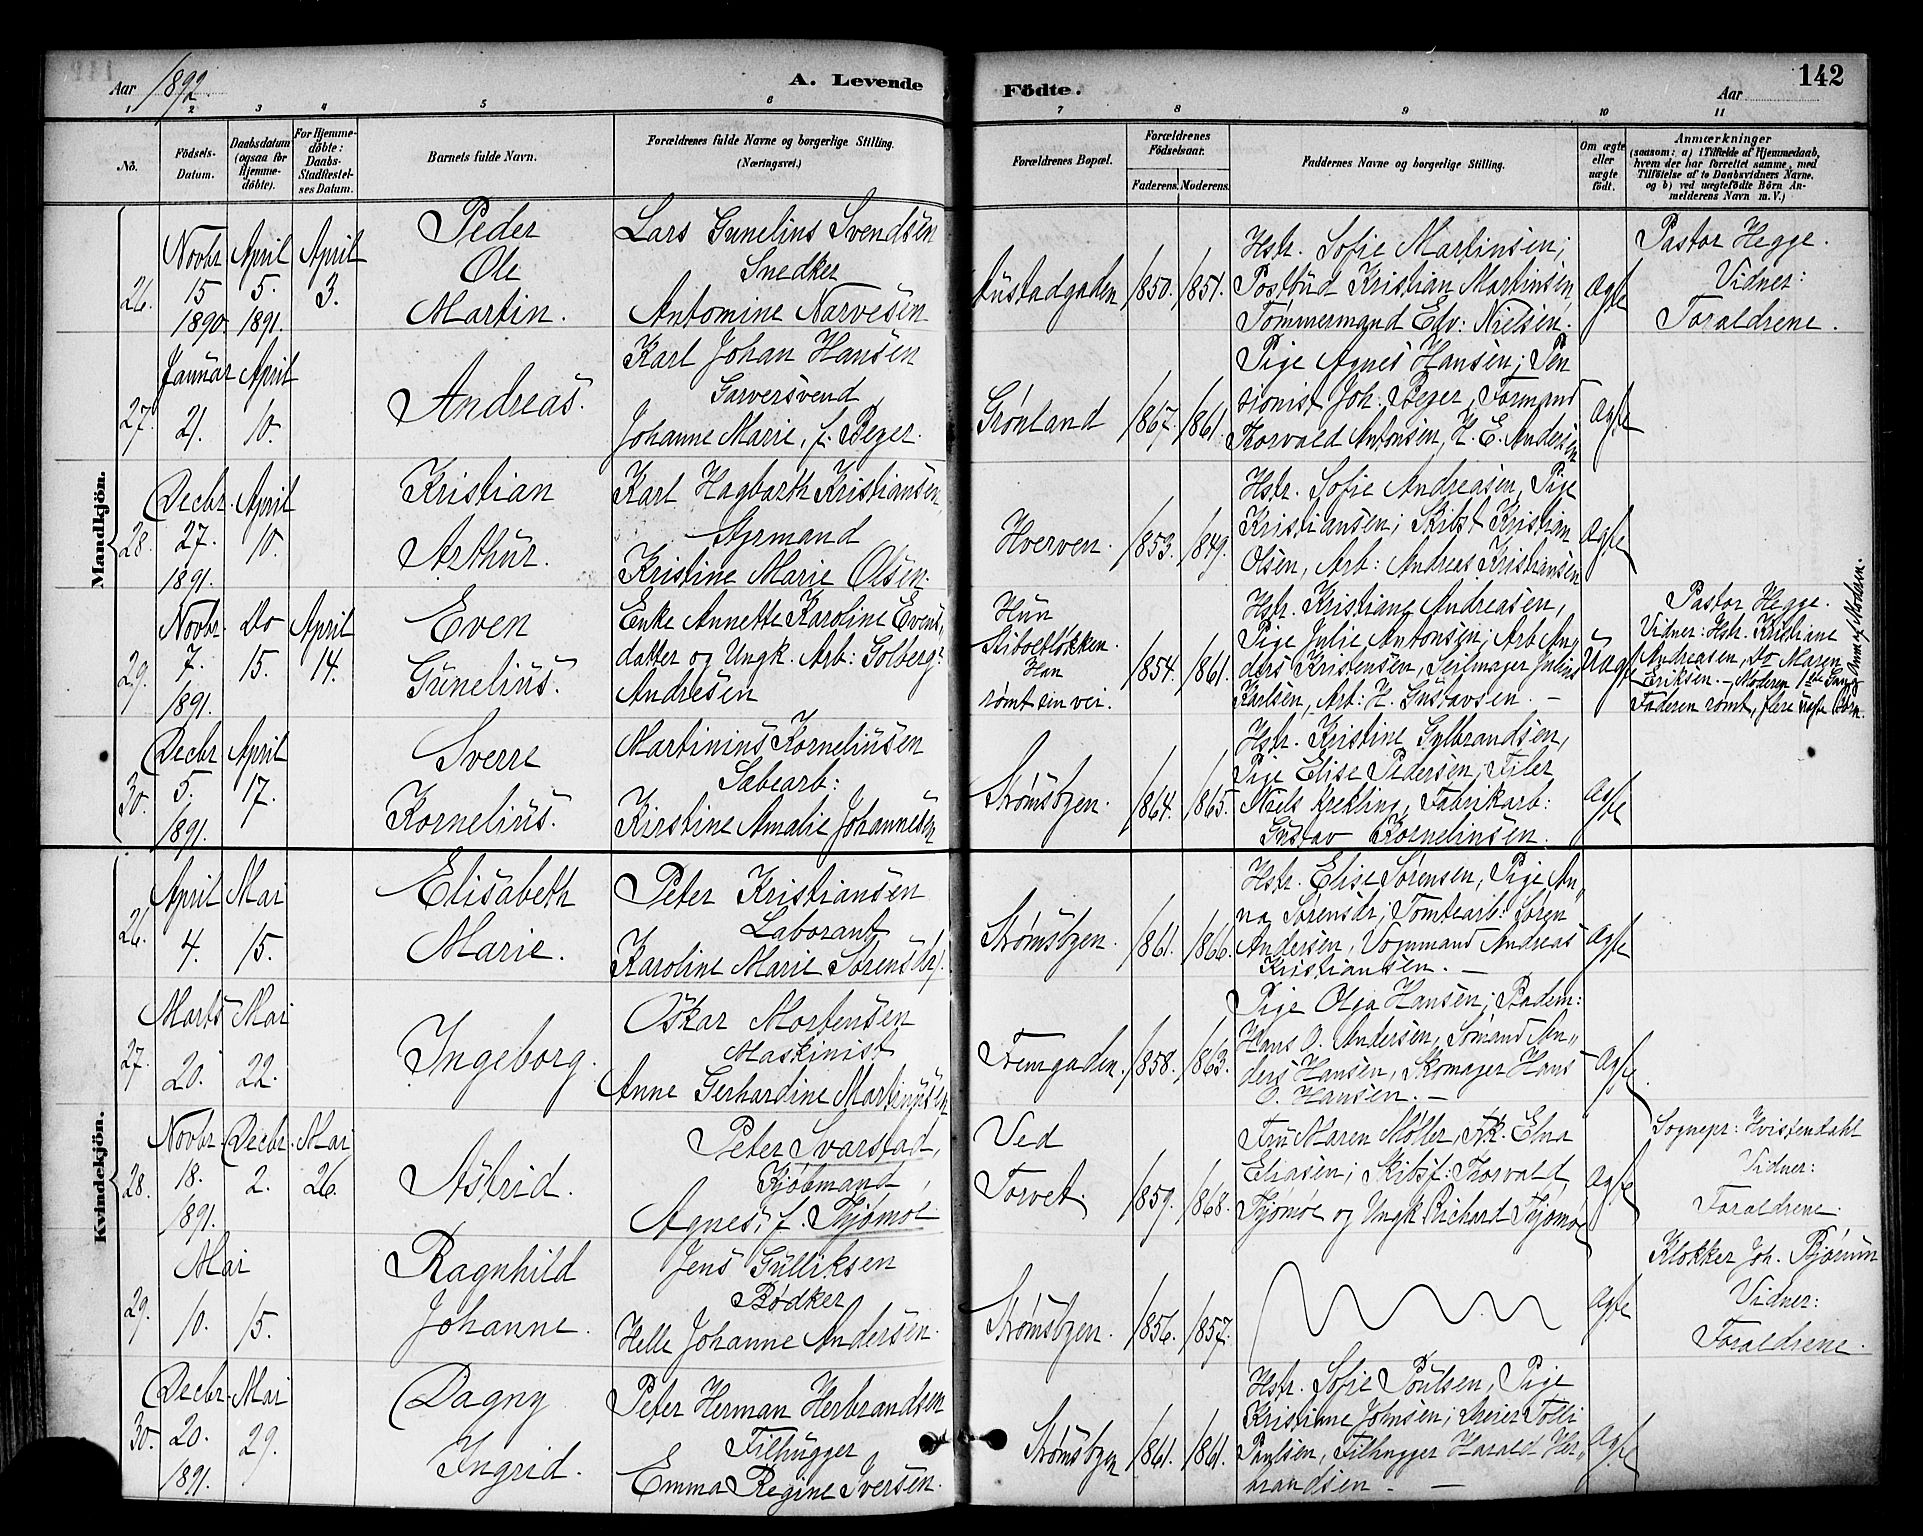 Aar 1892 A. Levende
Födte. Aar 142
1 2 3 4 5 6 7 8 9 10 11
Nö.
Födsels-Datum.
Daabsdatum (ogsaa for Hjemme-döbte).
For Hjemme-döbte: Daabs-Stadfæstel-ses Datum.
Barnets fulde Navn.
Forældrenes fulde Navne og borgerlige Stilling. (Næringsvei.)
Forældrenes Bopæl.
Forældrenes Födselsaar.
Faderens. Moderens.
Faddernes Navne og borgerlige Stilling.
Om ægte eller uægte födt.
Anmærkninger (saasom: a) i Tilfælde af Hjemmedaab, hvem der har forrettet samme, med Tilföielse af to Daabsvidners Navne, og b) ved uægtefödte Börn An-melderens Navn m. V.)
Mandkjön.
26.
Novbr 15 1890
April 5. 1891.
April 3.
Peder
Ole
Martin.
Lars Gunelius Svendsen
Snedker
Antomine Narvesen
1850. 1851.
Hstr. Sofie Martinsen;
Postbud Kristian Martinsen,
Tømmermand Edv: Nielsen.
ægte
Pastor Hegge.
Vidner:
Forældrene.
27.
Januar 21.
April 10.
Andreas.
Karl Johan Hansen
Garversvend
Johanne Marie, f. Beyer.
Grønland
1867. 1861.
Pige Agnes Hansen; Pen
sionist Joh. Beyer, Formand
Thorvald Antonsen, H. E. Andersen
ægte
28.
Decbr. 27. 1891.
April 10.
Kristian
Arthur.
Karl Hagbarth Kristiansen,
Styrmand
Kristine Marie Olsen.
Hverven.
1853. 1849.
Hstr. Sofie Andreasen, Pige
Kristiansen; Skibst. Kristian
Olsen, Arb: Andreas Kristiansen
ægte
29.
Novbr. 7. 1891.
Do 15.
April 14.
Even
Gunelius.
Enke Annette Karoline Evens
datter og Ungk. Arb: Solberg
Andresen
Hun
Stiboltløkken.
Han
rømt sin vei.
1854. 1861.
Hstr. Kristiane Andreasen,
Pige Julie Antonsen; Arb An„
ders Kristensen, Seilmager Julius
Karlsen, Arb: H. Gustavsen. –
Uægte
Pastor Hegge.
Vidner: Hstr. Kristiane
Andreasen, Do Maren
Eriksen. – Moderen 1ste Gang
Faderen rømt, flere uægte Børn.
Anm. af Moderen.
30.
Decbr 5. 1891.
April 17.
Sverre
Kornelius.
Martinius Korneliusen
Sabearb:
Kirstine Amalie Johannesen
Strømsbyen.
1864. 1865.
Hstr. Kristine Gylbrandsen,
Pige Elise Pedersen; Filer
Niels Krekling, Fabrikarb:
Gustav Korneliusen.
ægte
Kvindekjön.
26.
April 4.
Mai 15.
Elisabeth
Marie.
Peter Kristiansen
Laborant
Karoline Marie Sørensdtr.
Strømsbyen.
1861. 1866.
Hstr. Elise Sørensen, Pige An„
na Sørensdr; Tomtearb: Søren
Andersen, Vognmand Andreas
Kristiansen. –
ægte
27.
Marts 20.
Mai 22.
Ingeborg.
Oskar Mortensen
Maskinist
Anne Gerhardine Martinusen
Tremgaden.
1858. 1863.
Pige Olga Hansen; Badem:
Hans O. Andersen, Sømand An„
ders Hansen, Skomager Hans
O. Hansen. –
ægte
28.
Novbr. 18. 1891.
Decbr. 2.
Mai 26.
Astrid.
Peter Svarstad,
Kjøbmand,
Agnes, f. Thjømøe
Ved
Torvet.
1859. 1868.
Fru Maren Møller, Frk. Elna
Eliasen; Skibsf: Thorvald
Thjømøe og Ungk Richard Thjømøe
ægte
Sognepr: Hvistendahl
Vidner:
Forældrene.
29.
Mai
10. 15.
Ragnhild
Johanne.
Jens Gulliksen
Bødker
Helle Johanne Andersen.
Strømsbyen.
1856. 1857.
ægte
Klokker Joh. Bjørum
Vidner:
Forældrene.
30.
Decbr. 20. 1891.
Mai 29.
Dagny
Ingrid.
Peter Herman Herbrandsen
Filhugger
Emma Regine Iversen.
Strømsbyen
1861. 1861.
Hstr. Sofie Poulsen, Pige
Kristiane Johnsen; Dreier Tolli
Paulsen, Filhugger Harald Her„
brandsen. –
ægte